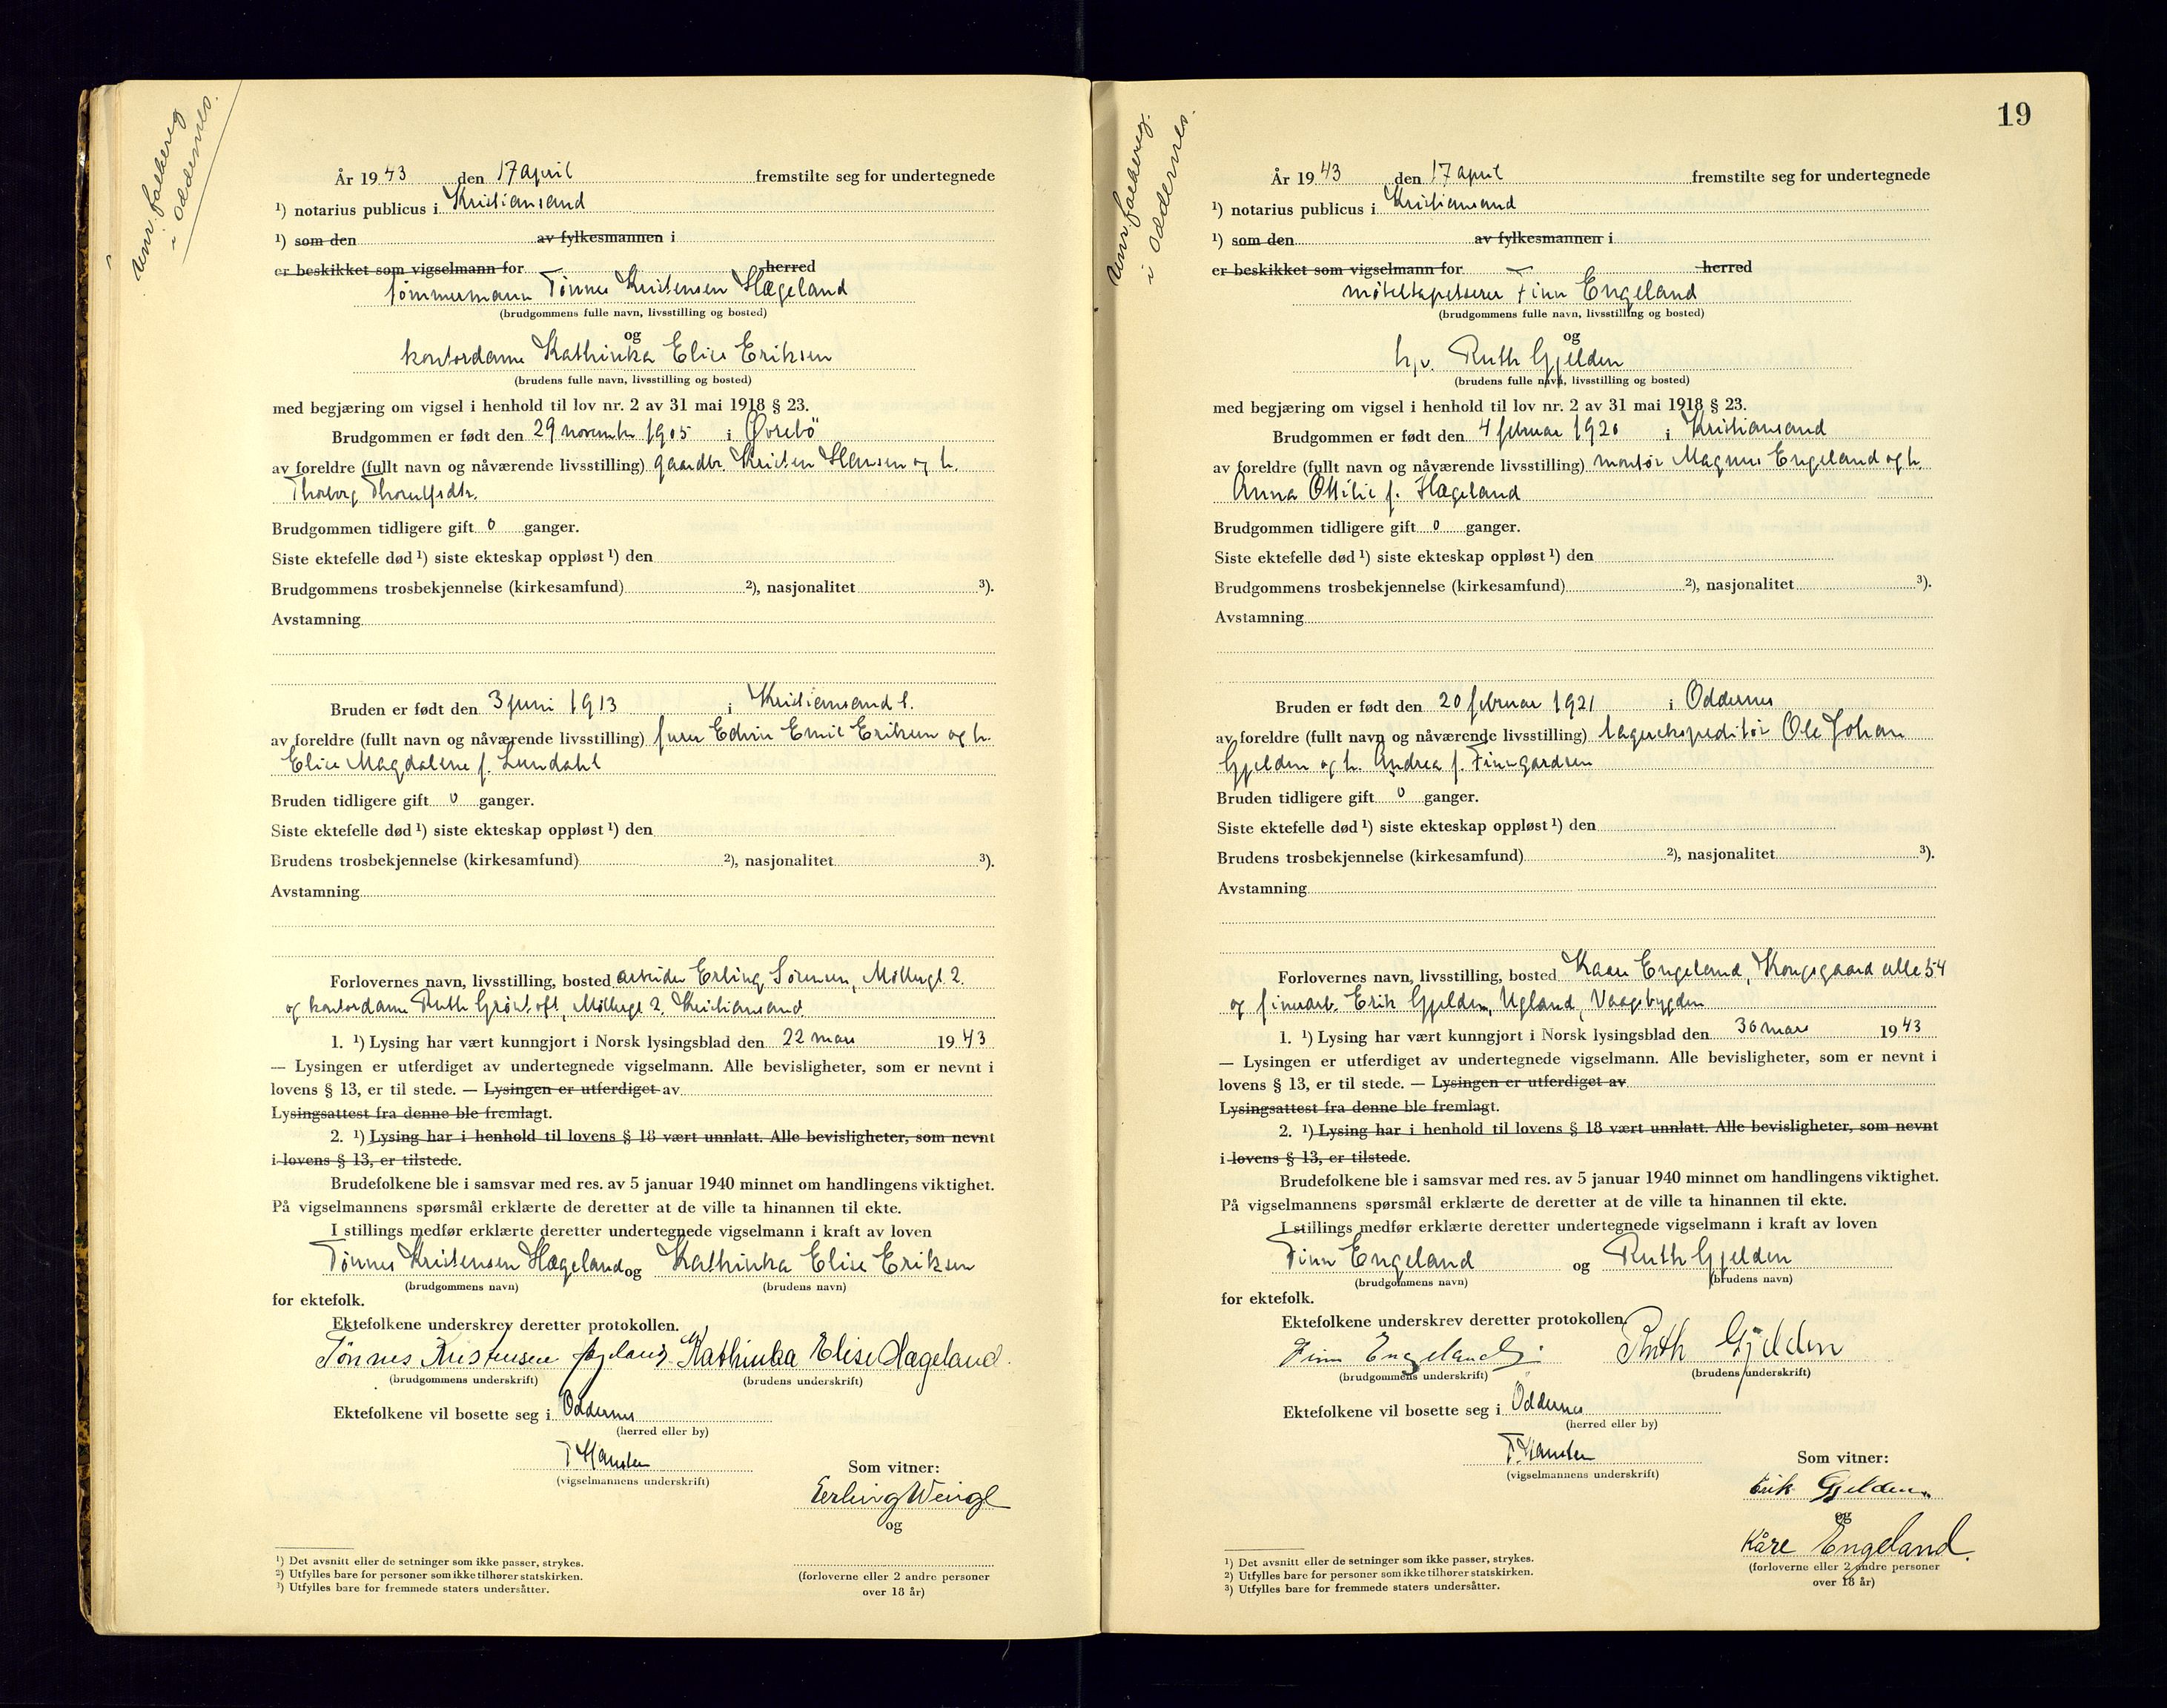 i Oddernes.
År 1943 den 17 april fremstilte seg for undertegnede
1) notarius publicus i Kristiansand
1) som den av fylkesmannen i
er beskikket som vigselmann for herred
tømmermann Tønnes Kristensen Hægeland
(brudgommens fulle navn, livsstilling og bosted)
og
kontordame Kathinka Elise Eriksen
(brudens fulle navn, livsstilling og bosted)
med begjæring om vigsel i henhold til lov nr. 2 av 31 mai 1918 § 23.
Brudgommen er født den 29 november 1905 i Øvrebö
av foreldre (fullt navn og nåværende livsstilling) gaardbr. Kristen Hansen og h.
Thorborg Thorulfsdtr.
Brudgommen tidligere gift 0 ganger.
Siste ektefelle død 1) siste ekteskap oppløst 1) den
Brudgommens trosbekjennelse (kirkesamfund) 2), nasjonalitet 3).
Avstamning
Bruden er født den 3 juni 1913 i Kristiansand S.
av foreldre (fullt navn og nåværende livsstilling) furer Edvin Emil Eriksen og h.
Elise Magdalene f. Lundahl
Bruden tidligere gift 0 ganger.
Siste ektefelle død 1) siste ekteskap oppløst 1) den
Brudens trosbekjennelse (kirkesamfund) 2), nasjonalitet 3).
Avstamning
Forlovernes navn, livsstilling, bosted arbeider Erling Sörensen, Møllergt. 2.
og kontordame Ruth Gröntoft, Møllergt 2, Kristiansand
1. 1) Lysing har vært kunngjort i Norsk lysingsblad den 22 mars 1943
— Lysingen er utferdiget av undertegnede vigselmann. Alle bevisligheter, som er nevnt i
lovens § 13, er til stede. — Lysingen er utferdiget av
Lysingsattest fra denne ble fremlagt.
2. 1) Lysing har i henhold til lovens § 18 vært unnlatt. Alle bevisligheter, som nevnt
i lovens § 13, er tilstede.
Brudefolkene ble i samsvar med res. av 5 januar 1940 minnet om handlingens viktighet.
På vigselmannens spørsmål erklærte de deretter at de ville ta hinannen til ekte.
I stillings medfør erklærte deretter undertegnede vigselmann i kraft av loven
Tönnes Kristensen Hægeland og Kathinka Elise Eriksen
(brudgommens navn) (brudens navn)
for ektefolk.
Ektefolkene underskrev deretter protokollen.
Tönnes Kristensen Hægeland Kathinka Elise Hægeland.
(brudgommens underskrift) (brudens underskrift)
Ektefolkene vil bosette seg i Oddernes
(herred eller by)
(vigselmannens underskrift)
Som vitner:
Erling
og
(forloverne eller 2 andre personer
over 18 år)
1) Det avsnitt eller de setninger som ikke passer, strykes.
2) Utfylles bare for personer som ikke tilhører statskirken.
3) Utfylles bare for fremmede staters undersåtter.
19
i Oddernes.
År 1943 den 17 april fremstilte seg for undertegnede
1) notarius publicus i Kristiansand
1) som den av fylkesmannen i
er beskikket som vigselmann for herred
møbeltapetserer Finn Engeland
(brudgommens fulle navn, livsstilling og bosted)
og
hjv. Ruth Gjelden
(brudens fulle navn, livsstilling og bosted)
med begjæring om vigsel i henhold til lov nr. 2 av 31 mai 1918 § 23.
Brudgommen er født den 4 februar 1920 i Kristiansand
av foreldre (fullt navn og nåværende livsstilling) montør Magnus Engeland og h.
Anna Ottilie f. Hægeland
Brudgommen tidligere gift 0 ganger.
Siste ektefelle død 1) siste ekteskap oppløst 1) den
Brudgommens trosbekjennelse (kirkesamfund) 2), nasjonalitet 3).
Avstamning
Bruden er født den 20 februar 1921 i Oddernes
av foreldre (fullt navn og nåværende livsstilling) lagerekspeditör Ole Johan
Gjelden og h. Andrea f. Finngardsen
Bruden tidligere gift 0 ganger.
Siste ektefelle død 1) siste ekteskap oppløst 1) den
Brudens trosbekjennelse (kirkesamfund) 2), nasjonalitet 3).
Avstamning
Forlovernes navn, livsstilling, bosted Kaare Engeland, Kongsgaard alle 54
og finerarb. Erik Gjelden, Ugland, Vaagsbygden
1. 1) Lysing har vært kunngjort i Norsk lysingsblad den 30 mars 1943
— Lysingen er utferdiget av undertegnede vigselmann. Alle bevisligheter, som er nevnt i
lovens § 13, er til stede. — Lysingen er utferdiget av
Lysingsattest fra denne ble fremlagt.
2. 1) Lysing har i henhold til lovens § 18 vært unnlatt. Alle bevisligheter, som nevnt
i lovens § 13, er tilstede.
Brudefolkene ble i samsvar med res. av 5 januar 1940 minnet om handlingens viktighet.
På vigselmannens spørsmål erklærte de deretter at de ville ta hinannen til ekte.
I stillings medfør erklærte deretter undertegnede vigselmann i kraft av loven
Finn Engeland og Ruth Gjelden
(brudgommens navn) (brudens navn)
for ektefolk.
Ektefolkene underskrev deretter protokollen.
Finn Engeland Ruth Gjelden
(brudgommens underskrift) (brudens underskrift)
Ektefolkene vil bosette seg i Oddernes
(herred eller by)
(vigselmannens underskrift)
Som vitner:
Erik Gjelden.
og
Kåre Engeland.
(forloverne eller 2 andre personer
over 18 år)
1) Det avsnitt eller de setninger som ikke passer, strykes.
2) Utfylles bare for personer som ikke tilhører statskirken.
3) Utfylles bare for fremmede staters undersåtter.